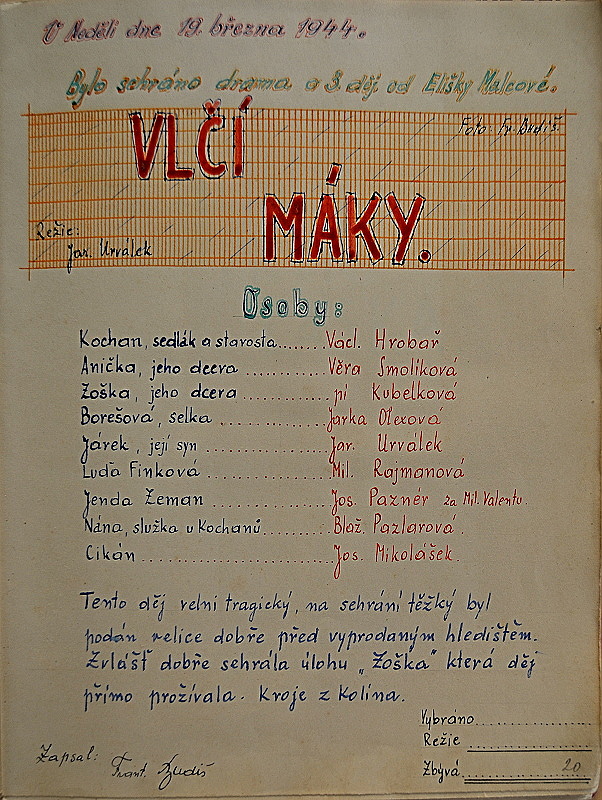 V Neděli dne 19. března 1944.
Bylo sehráno drama o 3. děj. od Elišky Malcové.
Foto: Fr. Dudiš.
VLČÍ
MÁKY.
Režie:
Jar. Urválek
Osoby:
Kochan, sedlák a starosta........Václ. Hrobař
Anička, jeho dcera ............Věra Smolíková
Žoška, jeho dcera ............pí Kubelková
Borešová, selka ...............Jarka Olexová
Járek, její syn ..................Jar. Urválek
Luďa Finková ................Mil. Rajmanová
Jenda Zeman ................Jos. Pazner za Mil. Valentu.
Nána, služka u Kochanů..........Blaž. Pazlarová.
Cikán ..........................Jos. Mikolášek.
Tento děj velni tragický, na sehrání těžký byl
podán velice dobře před vyprodaným hledištěm.
Zvlášť dobře sehrála úlohu „Žoška" která děj
přímo prožívala. Kroje z Kolína.
Vybráno..................
Režie ..................
Zbývá.................. 20
Zapsal:
Frant. Dudiš